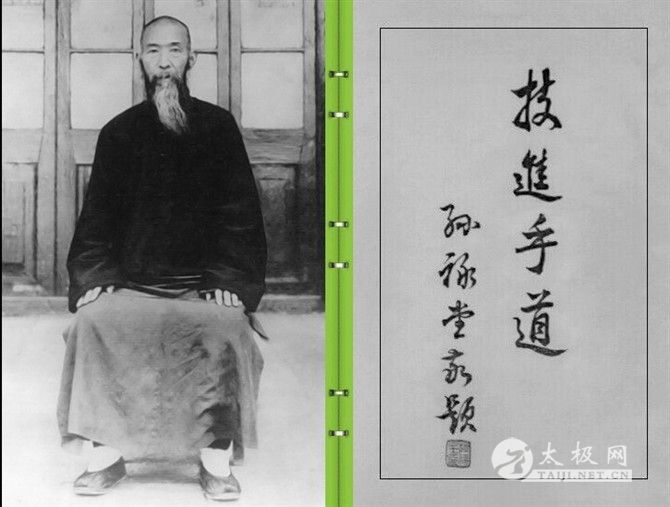 技進乎道
孫祿堂敬題
太极网
TAIJI.NET.CN